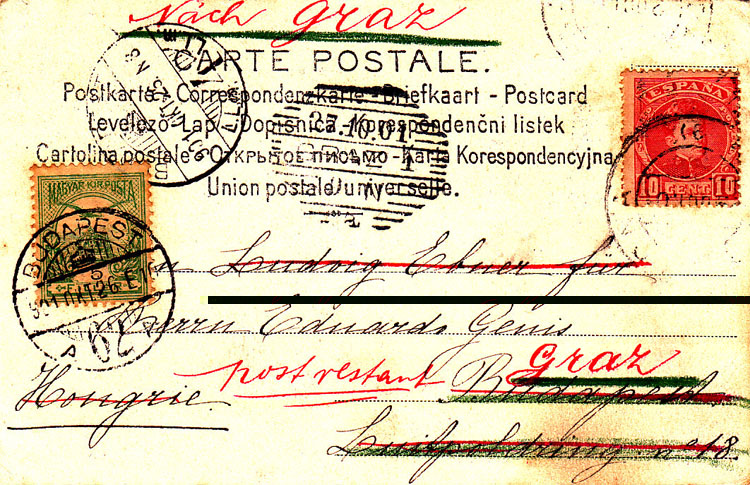 Nach Graz
CARTE POSTALE.
Postkarte - Correspondenzkarte - Briefkaart - Postcard
Levelező Lap - Dopisnica - Korespondenčni listek
Cartolina postale - Открытое письмо - Karta Korespondencyjna
Union postale universelle.
27.10.01
GRAZ 1
ESPAÑA
10 CENT 10
MAGYAR KIR. POSTA
BUDAPEST
62
Ludwig Ebner für
Herrn Eduardo Génis
post restant Graz
Hongrie. Budapest
Luitpoldring nº 18.